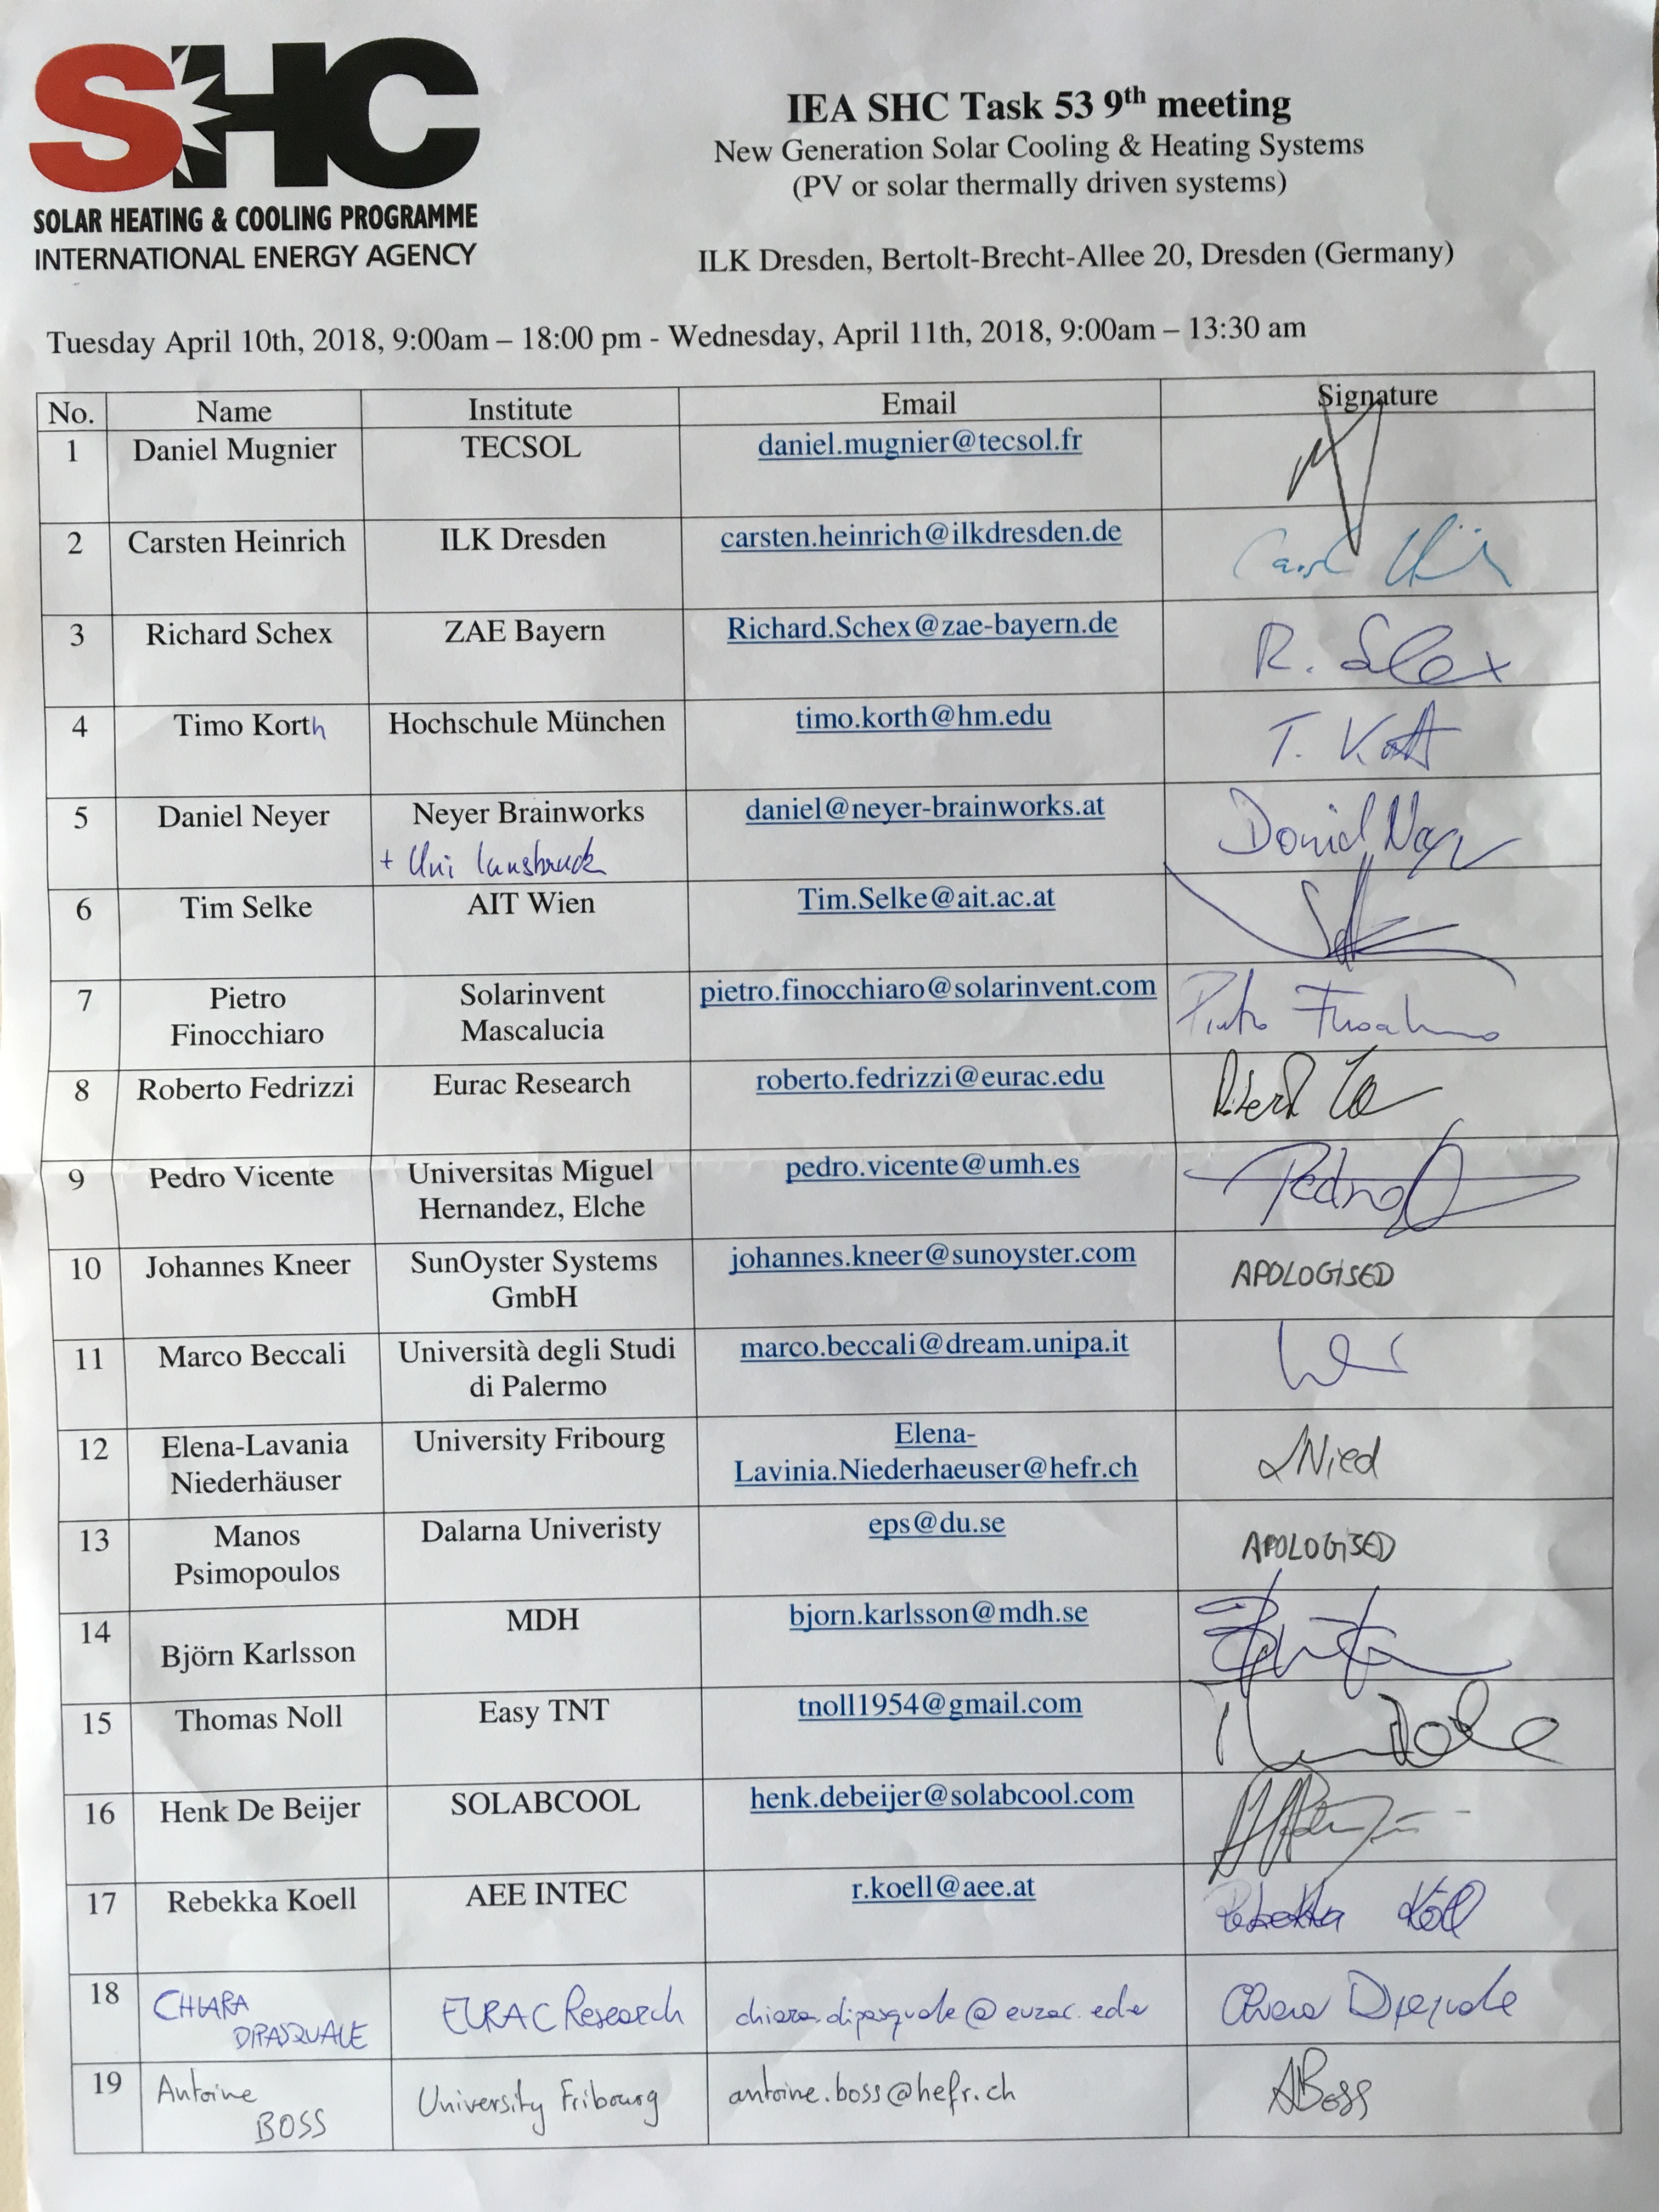 SHC
SOLAR HEATING & COOLING PROGRAMME
INTERNATIONAL ENERGY AGENCY
IEA SHC Task 53 9th meeting
New Generation Solar Cooling & Heating Systems
(PV or solar thermally driven systems)
ILK Dresden, Bertolt-Brecht-Allee 20, Dresden (Germany)
Tuesday April 10th, 2018, 9:00am – 18:00 pm - Wednesday, April 11th, 2018, 9:00am – 13:30 am
No. Name Institute Email Signature
1 Daniel Mugnier TECSOL daniel.mugnier@tecsol.fr
2 Carsten Heinrich ILK Dresden carsten.heinrich@ilkdresden.de
3 Richard Schex ZAE Bayern Richard.Schex@zae-bayern.de R. Schex
4 Timo Korth Hochschule München timo.korth@hm.edu T. Korth
5 Daniel Neyer Neyer Brainworks daniel@neyer-brainworks.at Daniel Neyer
+ Uni Innsbruck
6 Tim Selke AIT Wien Tim.Selke@ait.ac.at
7 Pietro Solarinvent pietro.finocchiaro@solarinvent.com Pietro Finocchiaro
Finocchiaro Mascalucia
8 Roberto Fedrizzi Eurac Research roberto.fedrizzi@eurac.edu
9 Pedro Vicente Universitas Miguel pedro.vicente@umh.es Pedro
Hernandez, Elche
10 Johannes Kneer SunOyster Systems johannes.kneer@sunoyster.com APOLOGISED
GmbH
11 Marco Beccali Università degli Studi marco.beccali@dream.unipa.it
di Palermo
12 Elena-Lavania University Fribourg Elena-
Niederhäuser Lavinia.Niederhaeuser@hefr.ch Nied
13 Manos Dalarna Univeristy eps@du.se APOLOGISED
Psimopoulos
14 Björn Karlsson MDH bjorn.karlsson@mdh.se
15 Thomas Noll Easy TNT tnoll1954@gmail.com
16 Henk De Beijer SOLABCOOL henk.debeijer@solabcool.com
17 Rebekka Koell AEE INTEC r.koell@aee.at Rebekka Köll
18 CHIARA EURAC Research chiara.dipasquale@eurac.edu Chiara Dipasquale
DIPASQUALE
19 Antoine University Fribourg antoine.boss@hefr.ch ABoss
BOSS